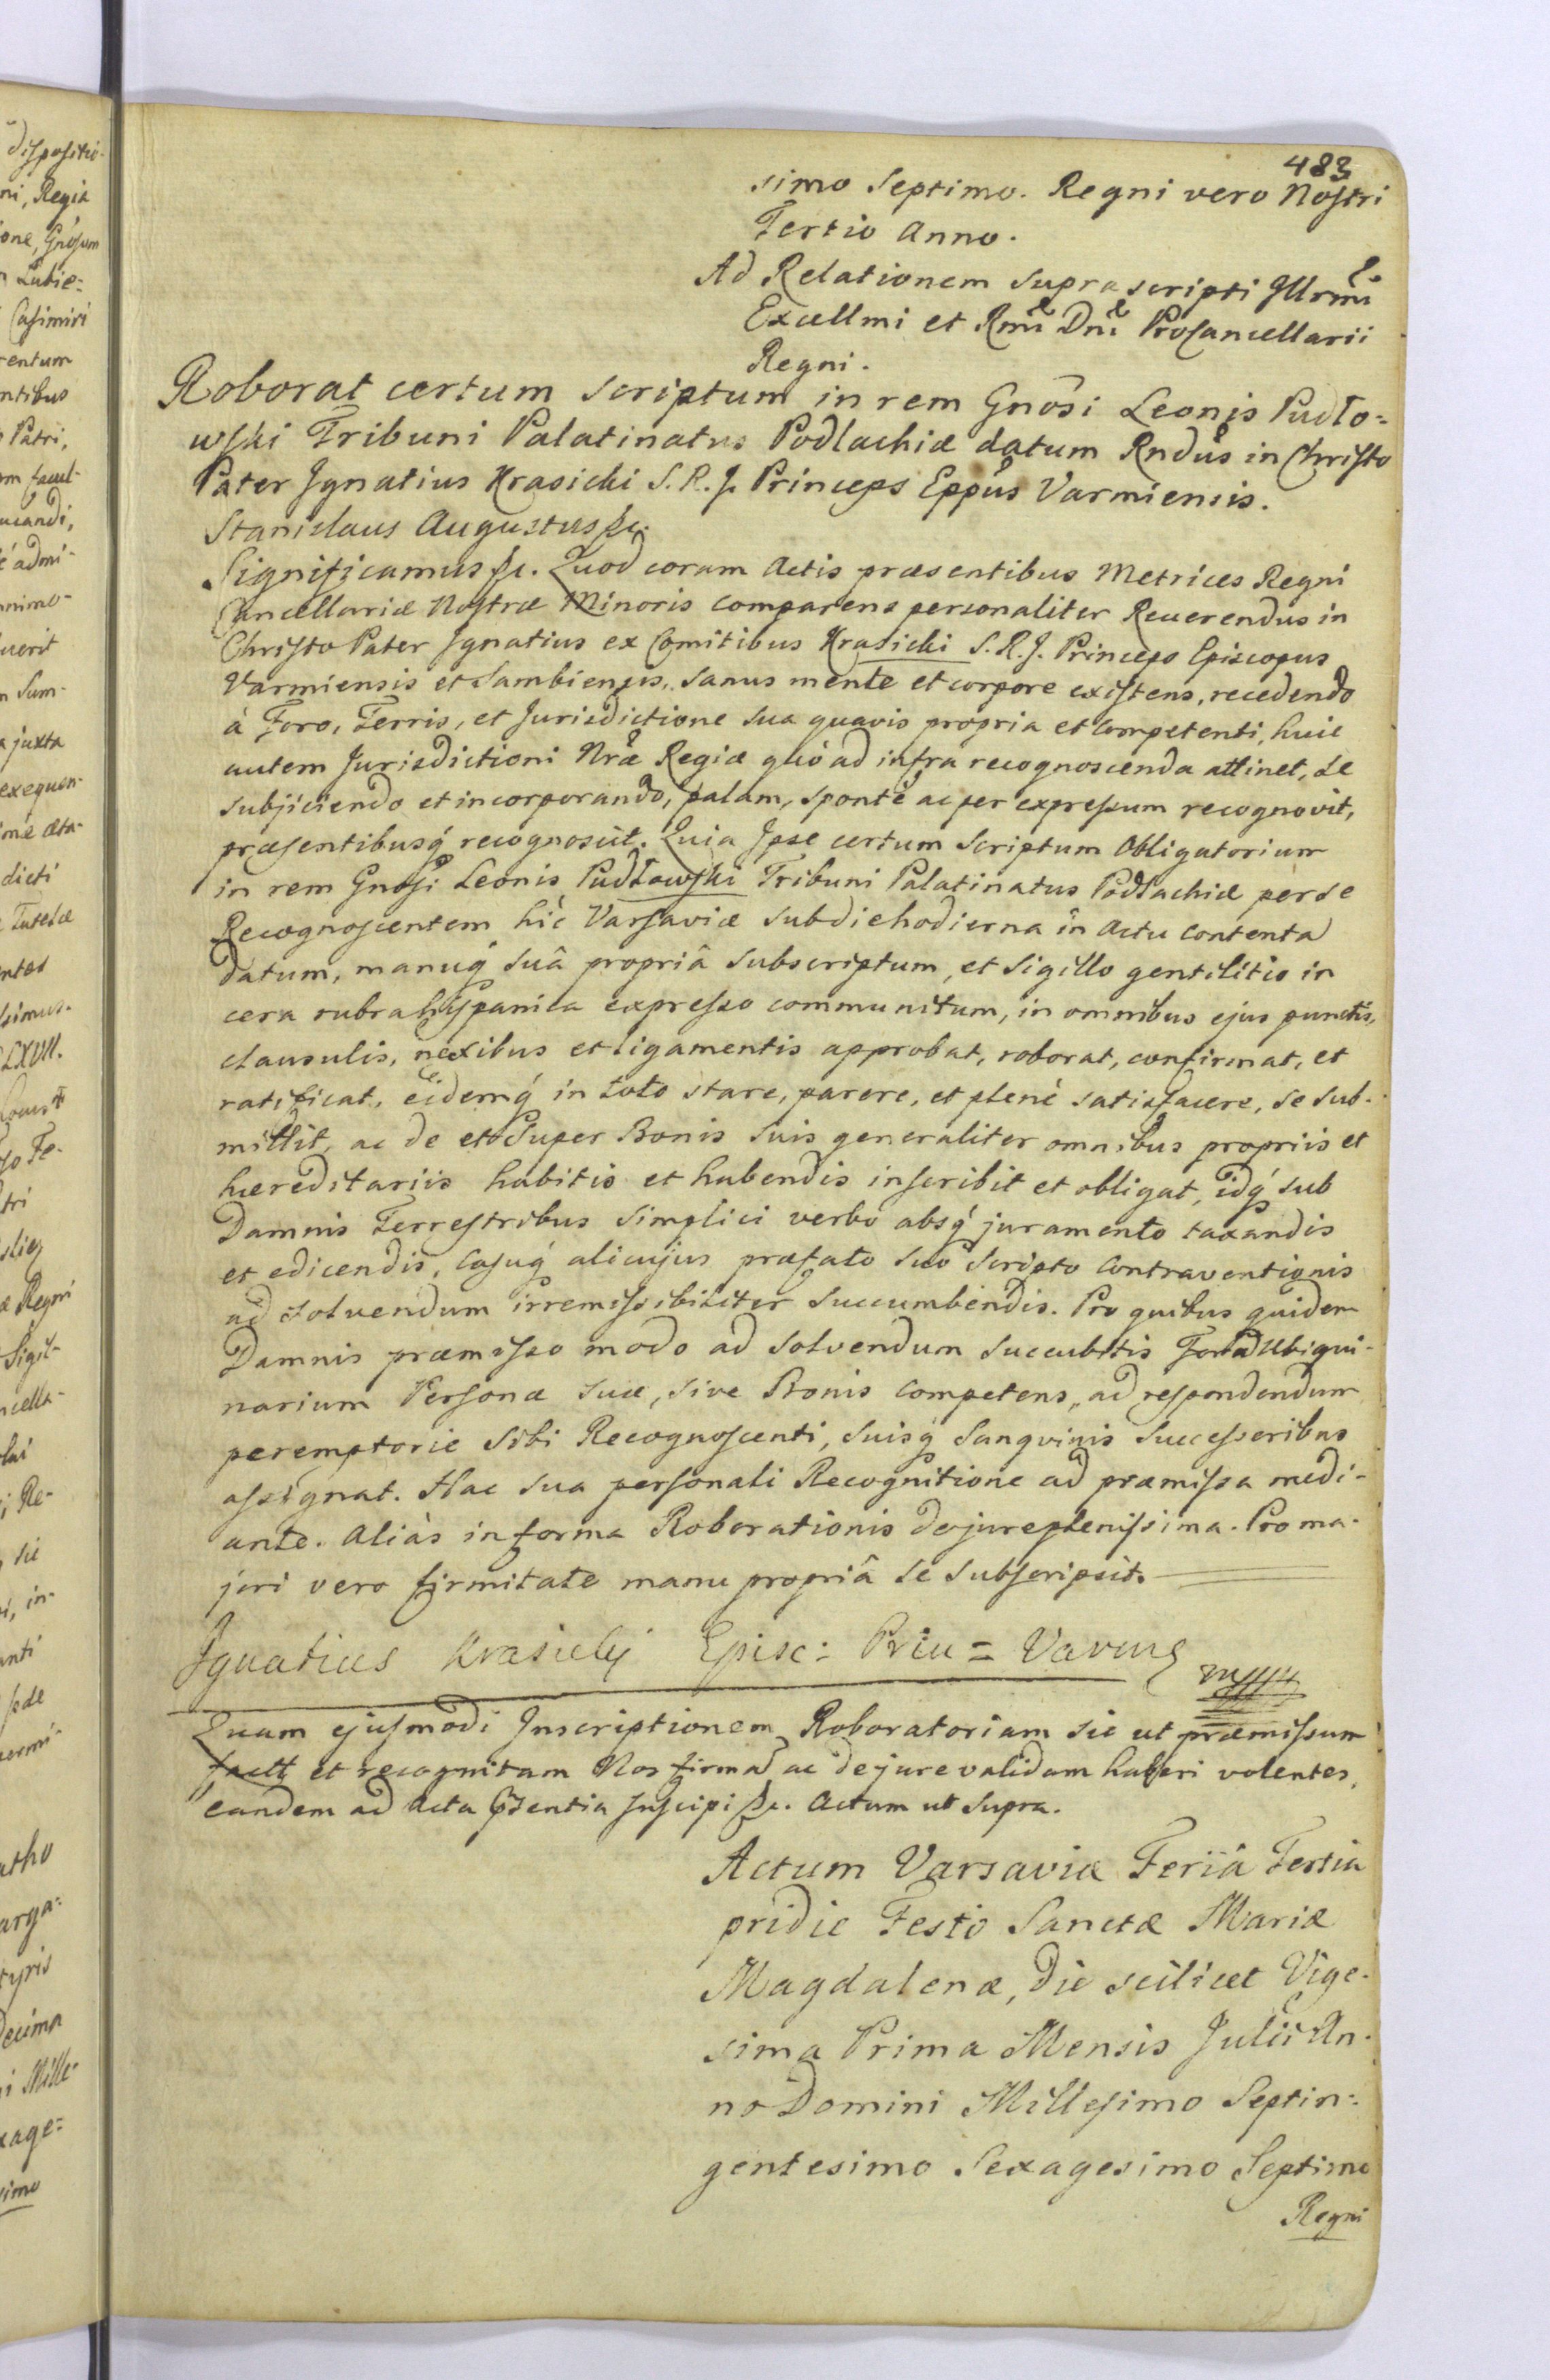 483
simo Septimo. Regni vero Nostri
Tertio Anno.
Ad Relationem supra scripti Illrmi
Excellmi et Rmi Dni Procancellarii
Regni.
Roborat certum scriptum in rem Gnosi Leonis Pudło=
wski Tribuni Palatinatus Podlachiæ datum Rndus in Christo
Pater Ignatius Krasicki S. R. I. Princeps Eppus Varmiensis.
Stanislaus Augustus &c.
Significamus &c. Quod coram Actis præsentibus Metrices Regni
Cancellariæ Nostræ Minoris comparens personaliter Reverendus in
Christo Pater Ignatius ex Comitibus Krasicki S. R. I. Princeps Episcopus
Varmiensis et Sambiensis, sanus mente et corpore existens, recedendo
à Foro, Terris, et Jurisdictione sua quavis propria et competenti, huic
autem Jurisdictioni Nræ Regiæ quò ad infra recognoscenda attinet, se
subjiciendo et incorporando, palam, sponte ac per expressum recognovit,
præsentibusq́ recognoscit. Quia Ipse certum Scriptum Obligatorium
in rem Gnosi Leonis Pudłowski Tribuni Palatinatus Podlachiæ per se
Recognoscentem hic Varsaviæ sub die hodierna in Actu contenta
datum, manuq́ suâ propriâ subscriptum, et Sigillo gentilitio in
cera rubra hispanica expresso communitum, in omnibus ejus punctis,
clausulis, nexibus et ligamentis approbat, roborat, confirmat, et
ratificat, eidemq́ in toto stare, parere, et plenè satisfacere, se sub-
mittit, ac de et Super Bonis suis generaliter omnibus propriis et
hæreditariis habitis et habendis inscribit et obligat, idq́ sub
Damnis Terrestribus simplici verbo absq́ juramento taxandis
et edicendis, casuq́ alicujus præfato suo scripto contraventionis
ad solvendum irremissibiliter succumbendis. Pro quibus quidem
Damnis præmisso modo ad solvendum succubitis Forũ Ubiqui-
narium Personæ suæ, sive Bonis competens, ad respondendum
peremptorie sibi Recognoscenti, suisq́ Sangvinis Successoribus
assignat. Hac sua personali Recognitione ad præmissa medi-
ante. Aliàs in forma Roborationis de jure plenissima. Pro ma-
jori vero firmitate manu propriâ se subscripsit.
Ignatius Krasicki Episc: Prin = Varm mpp
Quam ejusmodi Inscriptionem Roboratoriam sic ut præmissum
et recognitam Nos firmã ac de jure validam haberi volentes,
eandem ad Acta pñsentia suscipi &c. Actum ut supra.
Actum Varsaviæ Feriâ Tertia
pridie Festo Sanctæ Mariæ
Magdalenæ, die scilicet Vige-
sima Prima Mensis Julii An-
no Domini Millesimo Septin-
gentesimo Sexagesimo Septimo
Regni